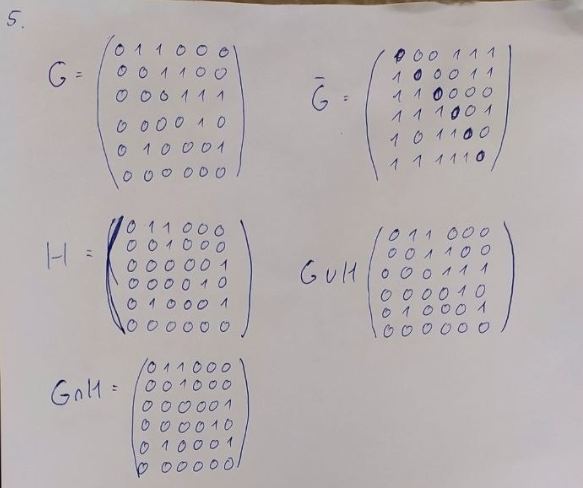 5.
G = ( 0 1 1 0 0 0
0 0 1 1 0 0
0 0 0 1 1 1
0 0 0 0 1 0
0 1 0 0 0 1
0 0 0 0 0 0 )
Ḡ = ( 0 0 0 1 1 1
1 0 0 0 1 1
1 1 0 0 0 0
1 1 1 0 0 1
1 0 1 1 0 0
1 1 1 1 1 0 )
H = ( 0 1 1 0 0 0
0 0 1 0 0 0
0 0 0 0 0 1
0 0 0 0 1 0
0 1 0 0 0 1
0 0 0 0 0 0 )
G∪H ( 0 1 1 0 0 0
0 0 1 1 0 0
0 0 0 1 1 1
0 0 0 0 1 0
0 1 0 0 0 1
0 0 0 0 0 0 )
G∩H = ( 0 1 1 0 0 0
0 0 1 0 0 0
0 0 0 0 0 1
0 0 0 0 1 0
0 1 0 0 0 1
0 0 0 0 0 0 )